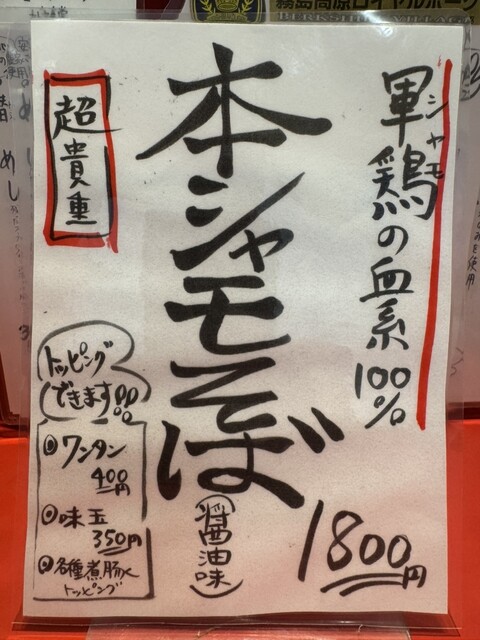 霧島高原ロイヤルポーク
軍鶏の血系100%
シャモ
本シャモそば
(醤油味)
1800円
超貴重
トッピング
できます!!
◎ワンタン
400円
◎味玉
350円
◎各種煮豚
トッピング